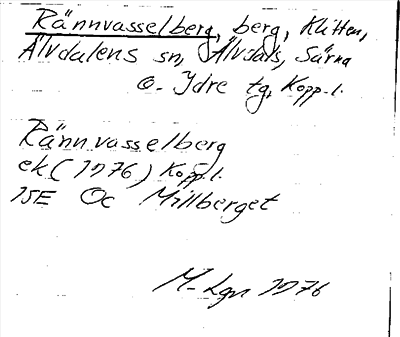 Rännvasselberg, berg, Klitten,
Älvdalens sn, Älvdals, Särna
o. Idre tg, Kopp.l.
Rännvasselberg
ek (1976) Kopp.l.
15E Oc Millberget
M-Lgn 1976